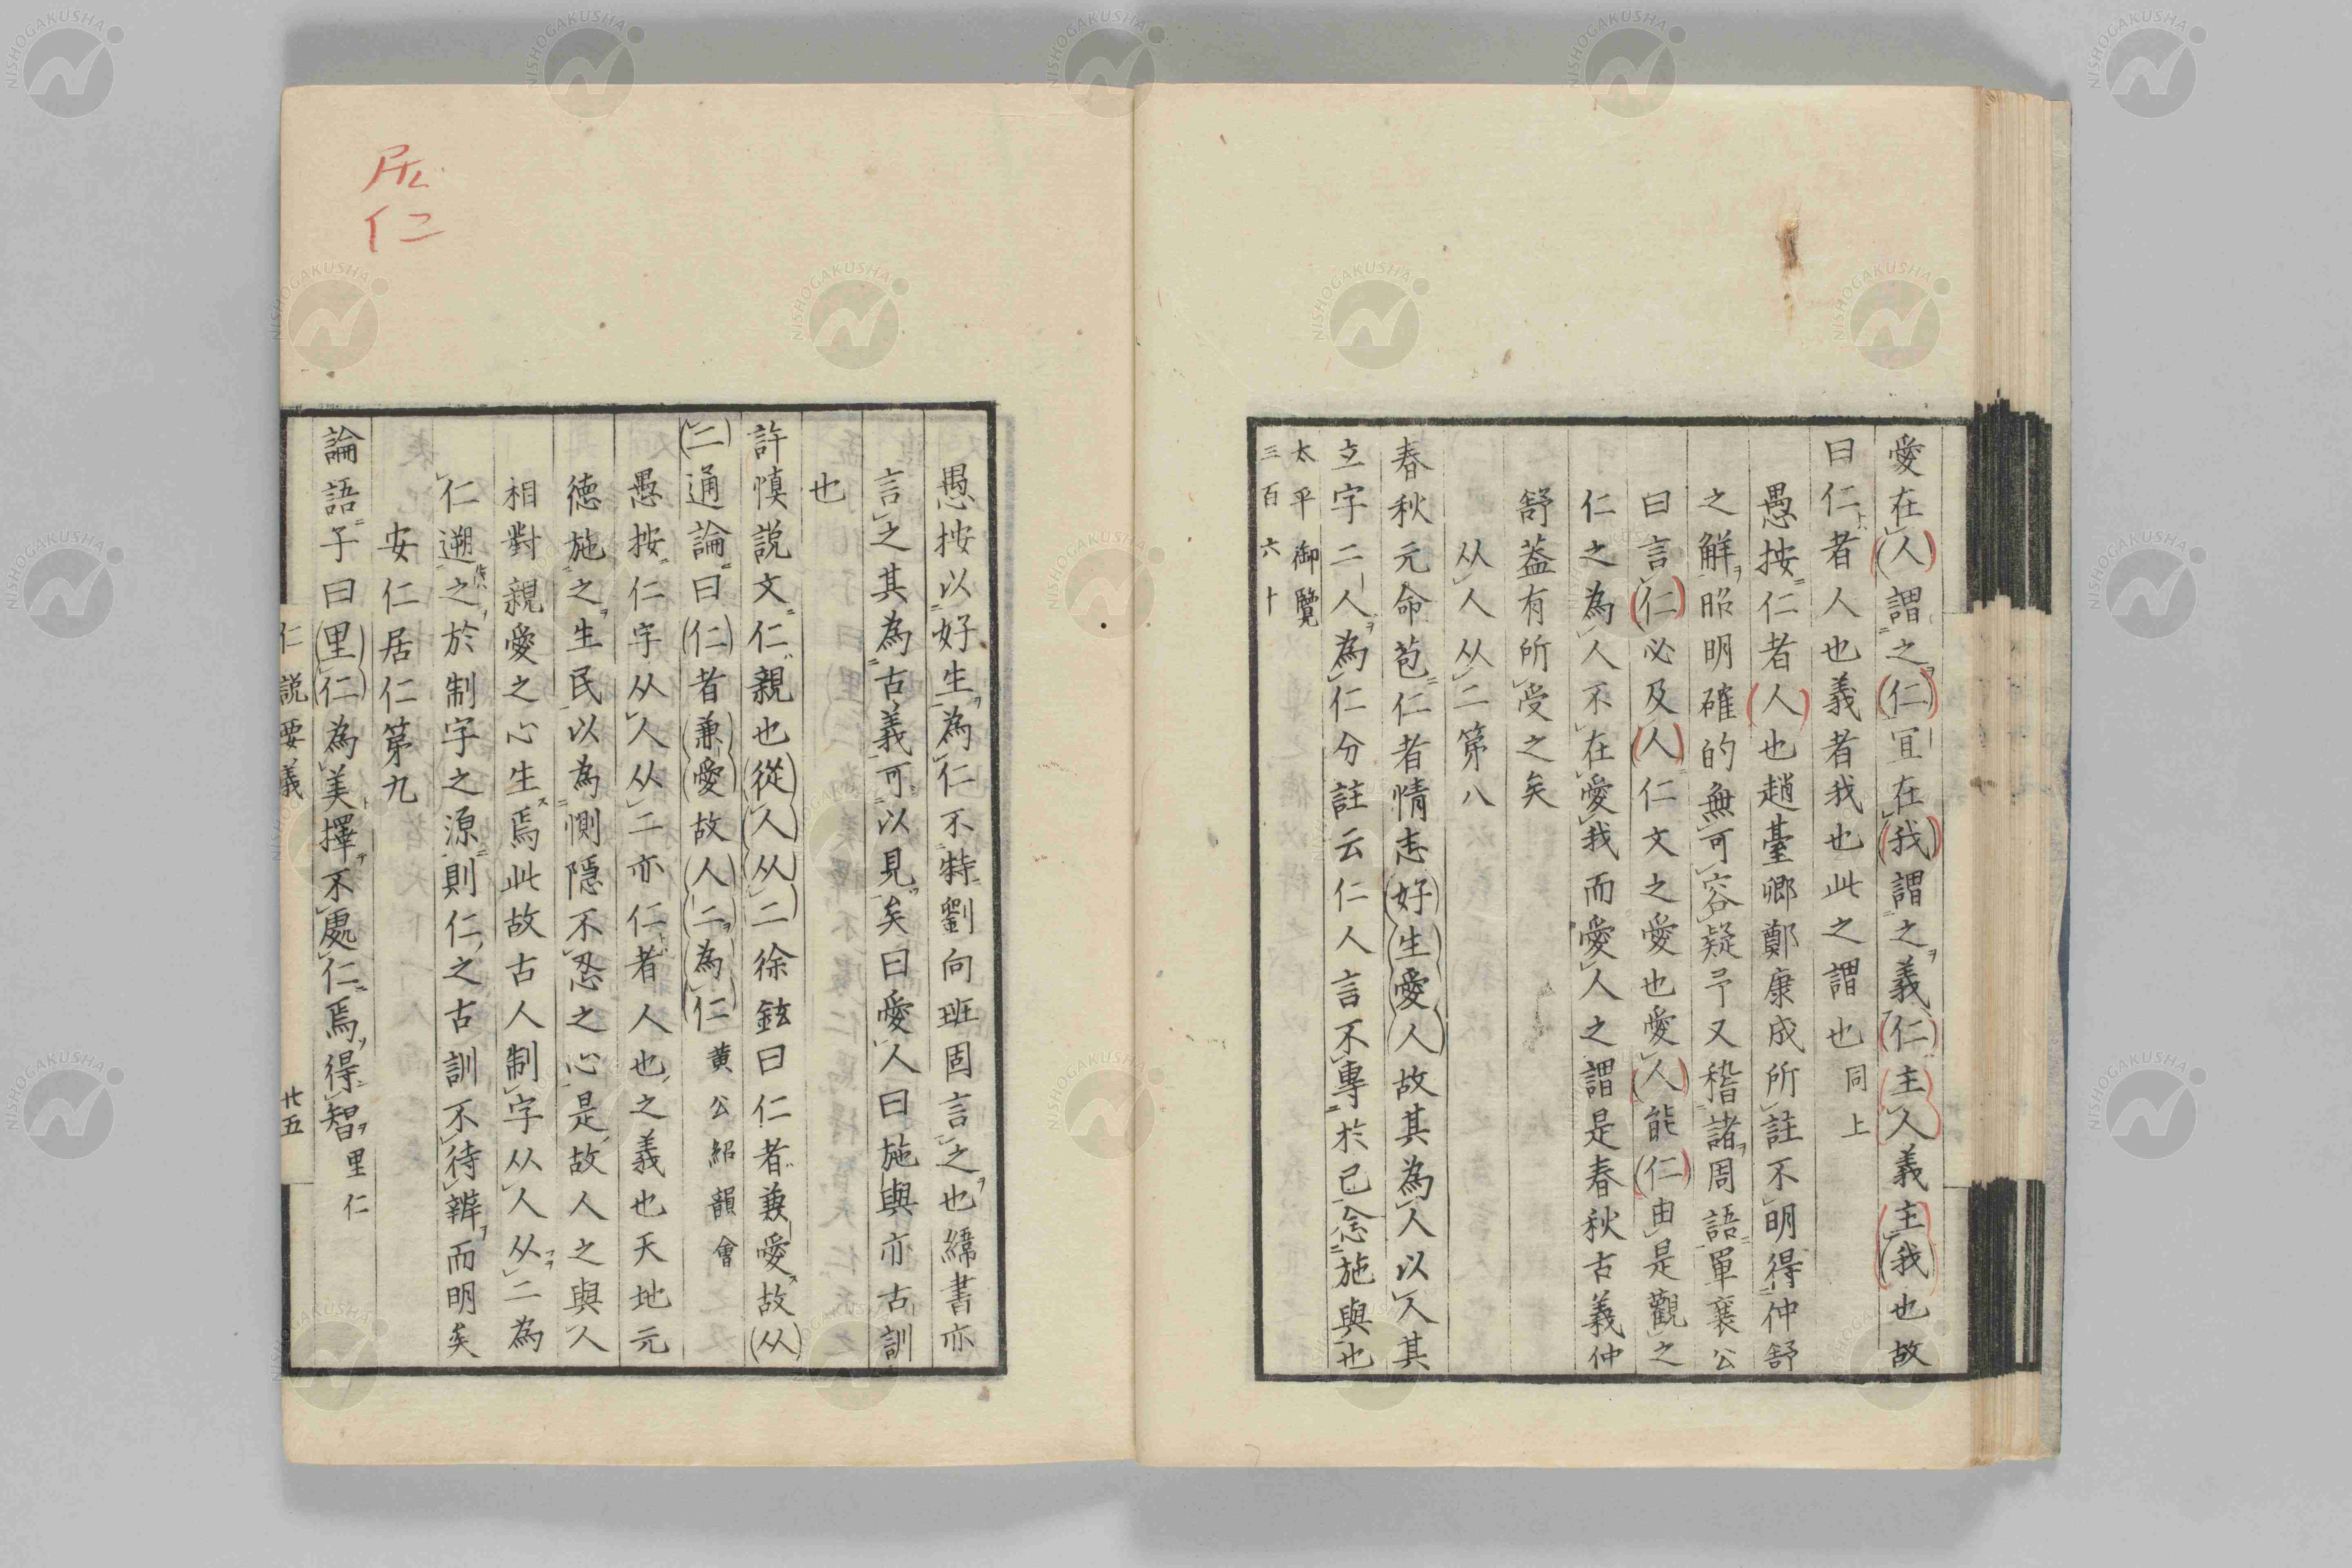 愛在人謂之仁宜在我謂之義仁主人義主我也故
曰仁者人也義者我也此之謂也同上
愚按仁者人也趙臺卿鄭康成所註不明得仲舒
之解昭明確的無可容疑予又稽諸周語單襄公
曰言仁必及人仁文之愛也愛人能仁由是觀之
仁之為人不在愛我而愛人之謂是春秋古義仲
舒蓋有所受之矣
从人从二第八
春秋元命苞仁者情志好生愛人故其為人以人其
立字二人為仁分註云仁人言不專於己念施與也
太平御覽
三百六十
愚按以好生為仁不特劉向班固言之也緯書亦
言之其為古義可以見矣曰愛人曰施與亦古訓
也
許慎說文仁親也從人从二徐鉉曰仁者兼愛故从
二通論曰仁者兼愛故人二為仁黄公紹韻會
愚按仁字从人从二亦仁者人也之義也天地元
德施之生民以為惻隠不忍之心是故人之與人
相對親愛之心生焉此故古人制字从人从二為
仁遡之於制字之源則仁之古訓不待辨而明矣
安仁居仁第九
論語子曰里仁為美擇不處仁焉得智里仁
仁説要義
廿五
居
仁
NISHOGAKUSHA